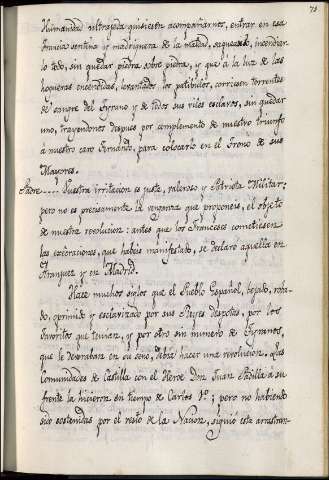 75
Humanidad ultrajada quisiesen acompañarnos, entrar en esa
inmunda sentina y madriguera de la maldad, saquearlo, incendiar-
lo todo, sin quedar piedra sobre piedra, y que á la luz de las
hogueras encendidas, levantados los patibulos, corriesen torrentes
de sangre del Tyrano y de todos sus viles esclavos, sin quedar
uno, trayendonos despues por complemento de nuestro triunfo
a nuestro caro Fernando, para colocarlo en el Trono de sus
Mayores.
Padre..... Vuestra irritacion es justa, valeroso y Patriota Militar;
pero no es precisamente la venganza que proponeis, el objeto
de nuestra revolucion: antes que los Franceses cometiesen
las execraciones, que habeis manifestado, se declaró aquella en
Aranjuez y en Madrid.
Hace muchos siglos que el Pueblo Español, vejado, roba-
do, oprimido y esclavizado por sus Reyes despotas, por los
Favoritos que tenian, y por otro sin numero de Tyranos,
que le devoraban en su seno, debia hacer una revolucion. Las
Comunidades de Castilla con el Heroe Don Juan Padilla a su
frente la hicieron en tiempo de Carlos 1º; pero no habiendo
sido sostenidas por el resto de la Nacion, siguió esta arrastran-